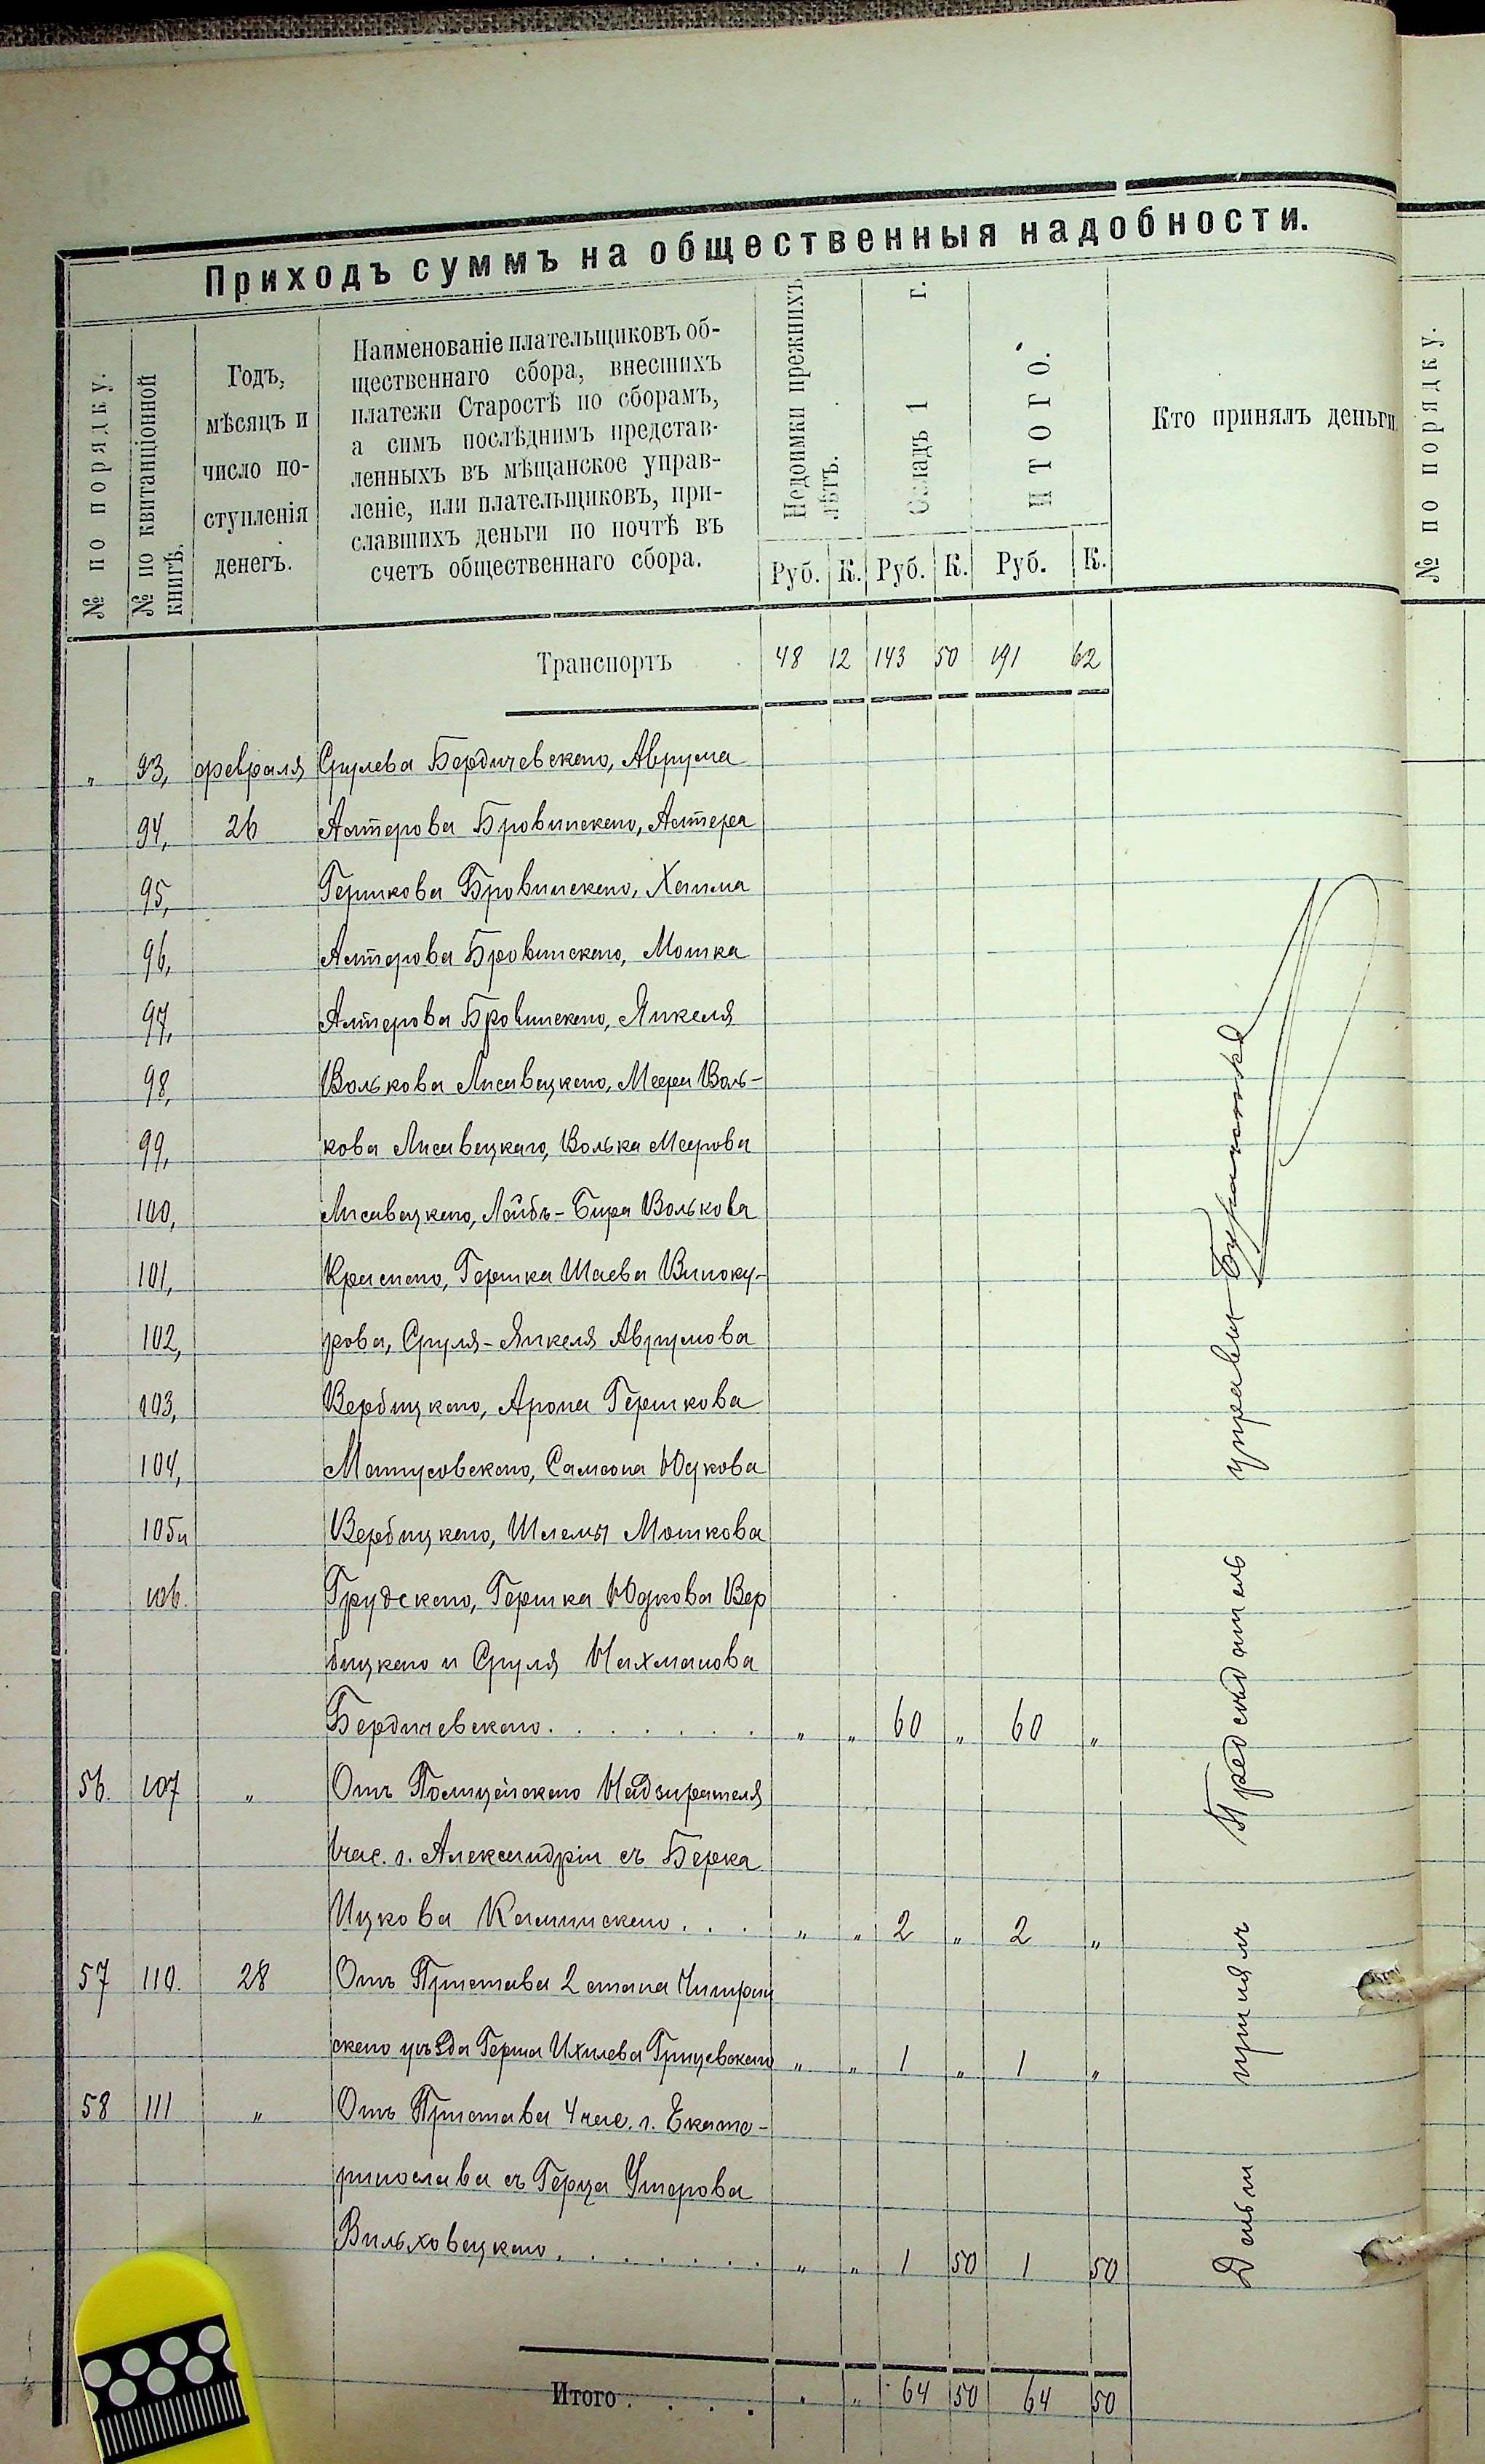 Приходъ суммъ на общественныя надобности.
№ по порядку.
№ по квитанціонной
книгѣ.
Годъ,
мѣсяцъ и
число по-
ступленія
денегъ.
Наименованіе плательщиковъ об-
щественнаго сбора, внесшихъ
платежи Старостѣ по сборамъ,
а симъ послѣднимъ представ-
ленныхъ въ мѣщанское управ-
леніе, или плательщиковъ, при-
славшихъ деньги по почтѣ въ
счетъ общественнаго сбора.
Недоимки прежнихъ
лѣтъ.
Окладъ 1 г.
ИТОГО.
Руб. К. Руб. К. Руб. К.
Кто принялъ деньги.
№ по порядку.
Транспортъ 48 12 143 50 191 62
„ 93, февраля Срулева Бердичевскаго, Аврума
94, 26 Алтерова Бровинскаго, Алтера
95, Гершкова Бровинскаго, Хаима
96, Алтерова Бровинскаго, Мошка
97, Алтерова Бровинскаго, Янкеля
98, Волькова Лисавецкаго, Меера Воль-
99, кова Лисавецкаго, Волька Меерова
100, Лисавецкаго, Лейбъ-Бера Волькова
101, Краснаго, Гершка Шаева Виноку-
102, рова, Сруля-Янкеля Аврумова
103, Вербицкаго, Арона Гершкова
104, Матусовскаго, Самсона Юдкова
105 и Вербицкаго, Шлемы Мошкова
106. Грудскаго, Гершка Юдкова Вер
бицкаго и Сруля Нахманова
Бердичевскаго. . . . . . . „ „ 60 „ 60 „
56. 107 „ Отъ Полицейскаго Надзирателя
1 час. г. Александріи съ Берка
Ицкова Каминскаго . . . „ „ 2 „ 2 „
57 110. 28 Отъ Пристава 2 стана Чигрин
скаго уѣзда Герша Ихилева Грицевскаго „ „ 1 „ 1 „
58 111 „ Отъ Пристава 4 час. г. Екате-
ринослава съ Герца Умерова
Вильховецкаго . . . . . . . „ „ 1 50 1 50
Итого . . . . „ „ 64 50 64 50
Деньги принялъ Предсѣдатель управы